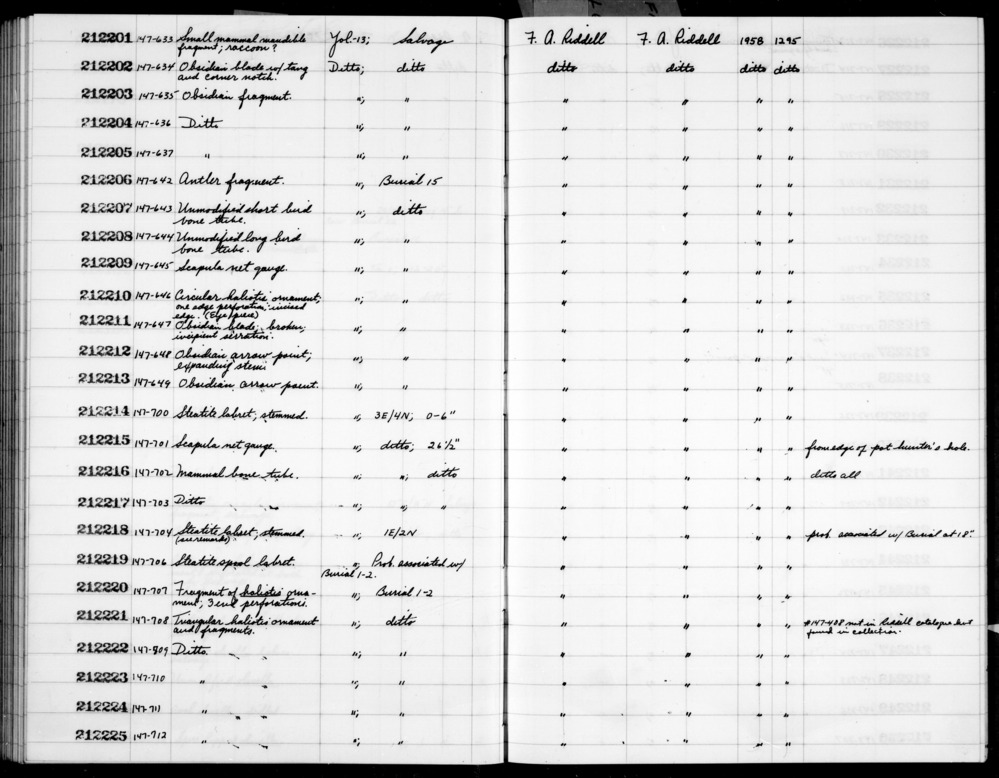 212201 147-633 Small mammal mandible Yol-13; Salvage F. A. Riddell F. A. Riddell 1958 1295
fragment; raccoon?
212202 147-634 Obsidian blade w/ tang Ditto; ditto ditto ditto ditto ditto
and corner notch.
212203 147-635 Obsidian fragment. "; " " " " "
212204 147-636 Ditto "; " " " " "
212205 147-637 " "; " " " " "
212206 147-642 Antler fragment. "; Burial 15 " " " "
212207 147-643 Unmodified short bird "; ditto " " " "
bone tube.
212208 147-644 Unmodified long bird "; " " " " "
bone tube.
212209 147-645 Scapula net gauge. "; " " " " "
212210 147-646 Circular haliotis ornament; "; " " " " "
one edge perforation; incised
edge. (Eye piece)
212211 147-647 Obsidian blade; broken; "; " " " " "
incipient serration.
212212 147-648 Obsidian arrow point; "; " " " " "
expanding stem
212213 147-649 Obsidian arrow point. "; " " " " "
212214 147-700 Steatite labret; stemmed. "; 3E/4N; 0-6" " " " "
212215 147-701 Scapula net gauge. "; ditto; 26½" " " " " from edge of pot hunter's hole.
212216 147-702 Mammal bone tube. "; "; ditto " " " " ditto all
212217 147-703 Ditto "; "; " " " " "
212218 147-704 Steatite labret; stemmed. "; 1E/2N " " " " prob. associated w/ Burial at 18".
(see remarks)
212219 147-706 Steatite spool labret. "; Prob. associated w/ " " " "
Burial 1-2.
212220 147-707 Fragment of haliotis orna- "; Burial 1-2 " " " "
ment; 3 end perforations.
212221 147-708 Triangular haliotis ornament "; ditto " " " " #147-408 not in Riddell catalogue but
and fragments. found in collection.
212222 147-709 Ditto. " " "; " " " " "
212223 147-710 " " "; " " " " "
212224 147-711 " " "; " " " " "
212225 147-712 " " "; " " " " "